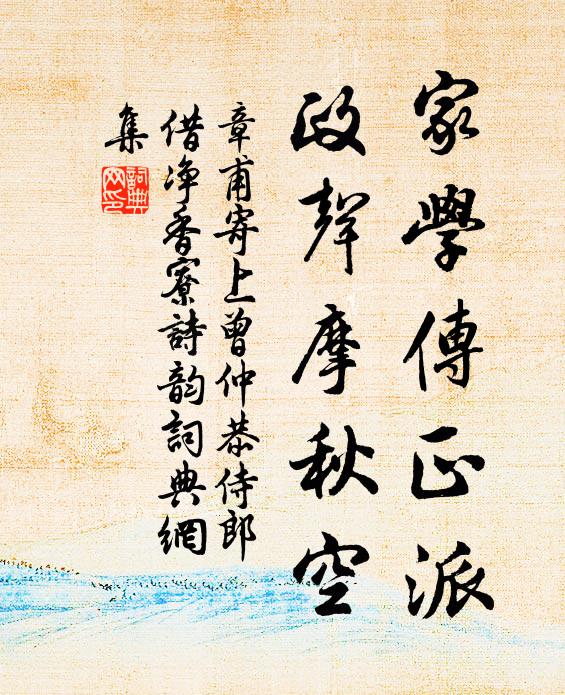 家學傳正派
政聲摩秋空
章甫寄上曾仲恭侍郎
借淨香寮詩韵詞典網
集
詞典網印